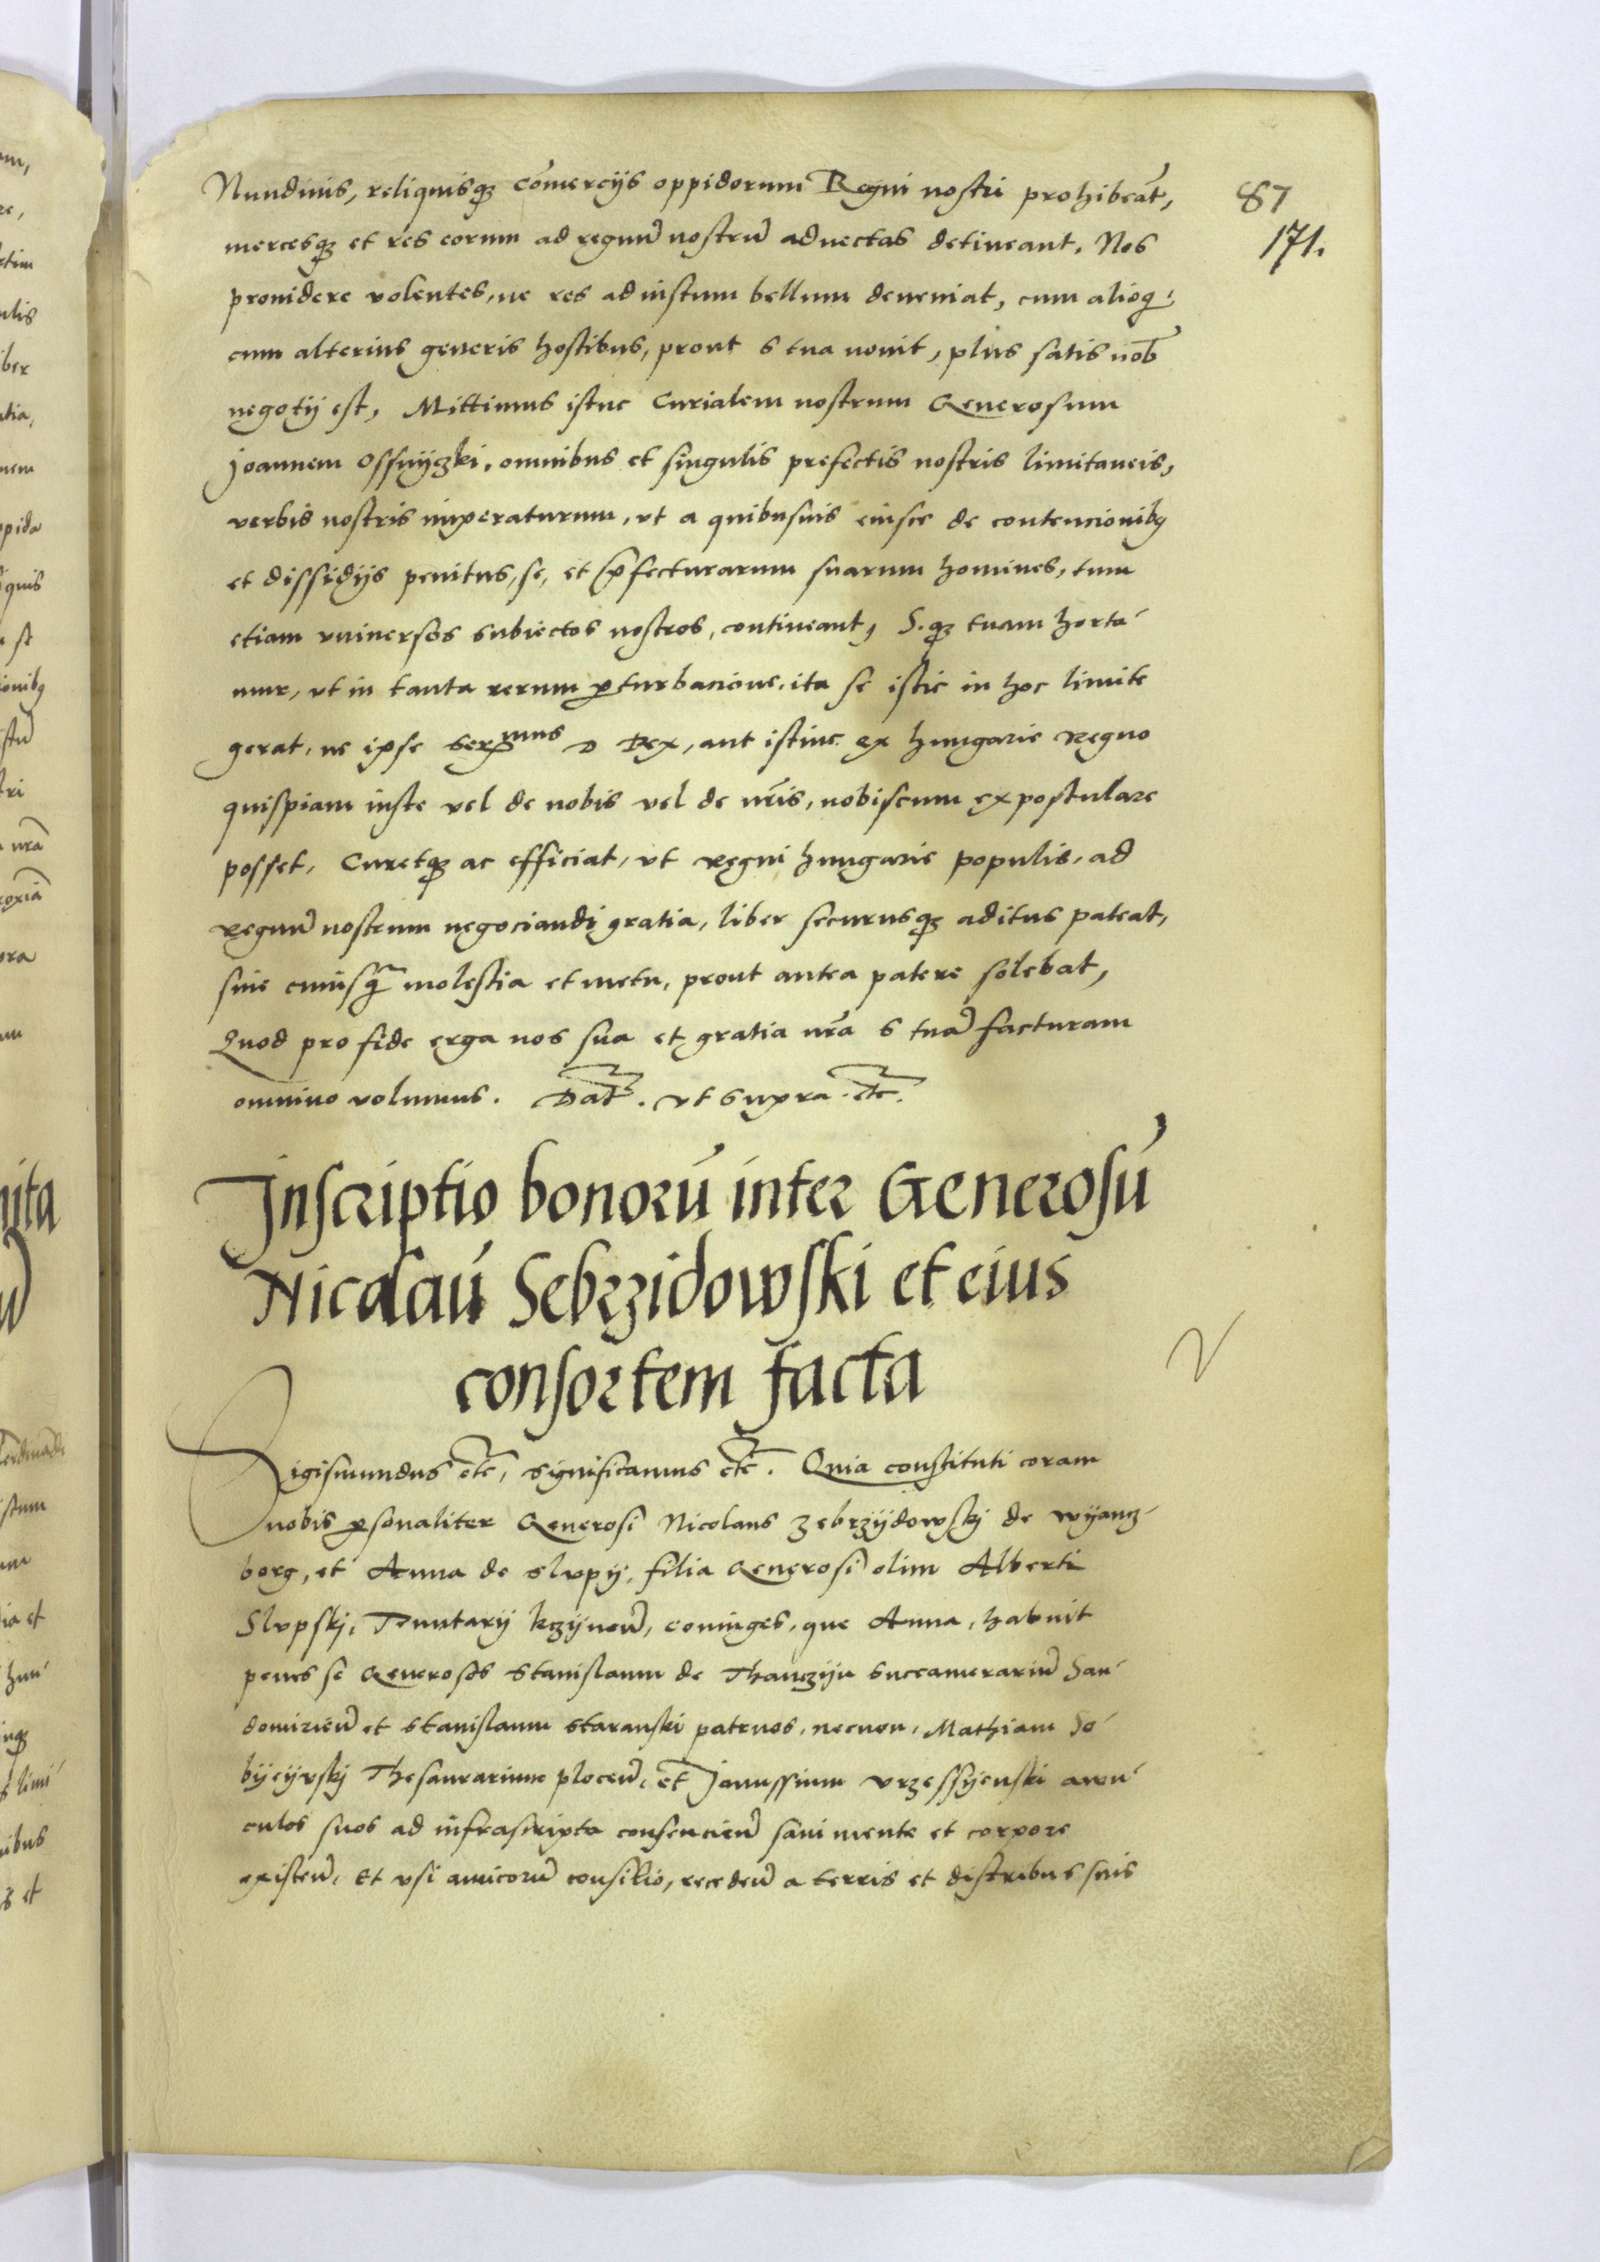 Nundinis, reliquisqȝ cōmercijs oppidorum Regni nostri prohibeāt,
87
mercesqȝ et res eorum ad regnū nostrū aduectas detineant. Nos
171.
prouidere volentes, ne res ad iustum bellum deueniat, cum alioqi
cum alterius generis hostibus, prout s tua nouit, plus satis nob̄
negotij est, Mittimus istuc Curialem nostrum Generosum
Joannem Ossuyczki, omnibus et singulis prefectis nostris limitaneis,
verbis nostris imperaturum, vt a quibusuis eiusce de contencionibȝ
et dissidijs penitus, se, et p̄fecturarum suarum homines, tum
etiam vniuersos subiectos nostros, contineant, S.qȝ tuam horta-
mur, vt in tanta rerum ꝑturbacione, ita se istic in hoc limite
gerat, ne ipse Ser̄mus D Rex, aut istinc ex Hungarie Regno
quispiam iuste vel de nobis vel de nr̄is, nobiscum expostulare
posset. Curetqȝ ac efficiat, vt Regni Hungarie populis, ad
Regnū nostrum negociandi gratia, liber securusqȝ aditus pateat,
sine cuiusq̄ molestia et metu, prout antea patere solebat,
Quod pro fide erga nos sua et gratia nr̄a s tuā facturam
omnino volumus. Dat̄. vt supra. etc̄.
Inscriptio bonorū inter Generosū
Nicolaū Sebrzidowski et eius
consortem facta
Sigismundus etc̄, significamus etc̄. Quia constituti coram
nobis ꝑsonaliter Generosi Nicolaus Zebrzydowskj de Wyancz-
borg, et Anna de Slvpy, filia Generosi olim Alberti
Slvpskj, Tenutarij kczynen̄, coniuges, que Anna, habuit
penes se Generosos Stanislaum de Thanczyn Succamerariū San-
domirien̄ et Stanislaum Staranski patruos, necnon, Mathiam So-
byeyvskj Thesaurarium plocen̄, et Janussium Vrzessyenski awn-
culos suos ad infrascripta consencien̄ sani mente et corpore
existen̄, Et vsi amicorū consilio, receden̄ a terris et districtibus suis